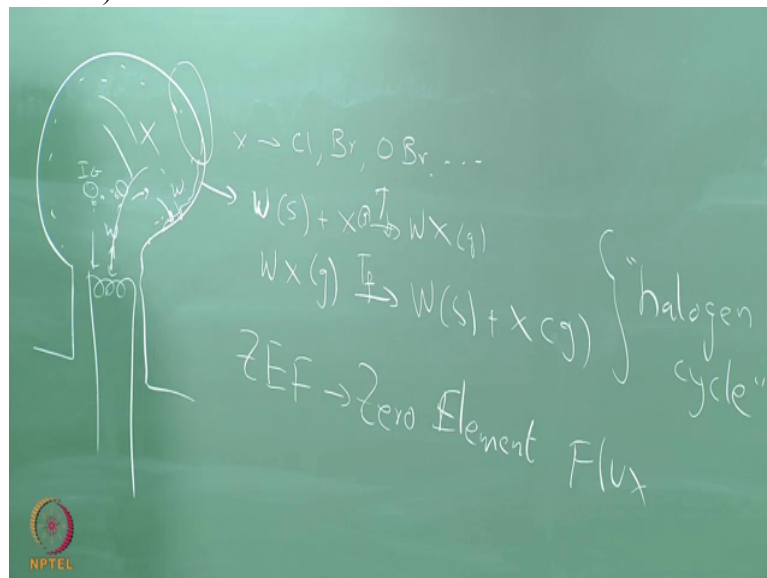 X
IG
W
W
x → Cl, Br, OBr, ....
W(s) + X(g) → WX(g)
WX(g) → W(s) + X(g)
"halogen cycle"
ZEF → Zero Element Flux
NPTEL